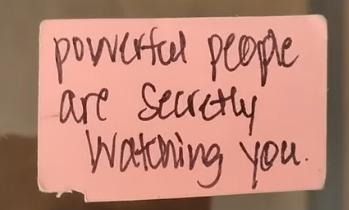 powerful people
are secretly
watching you.